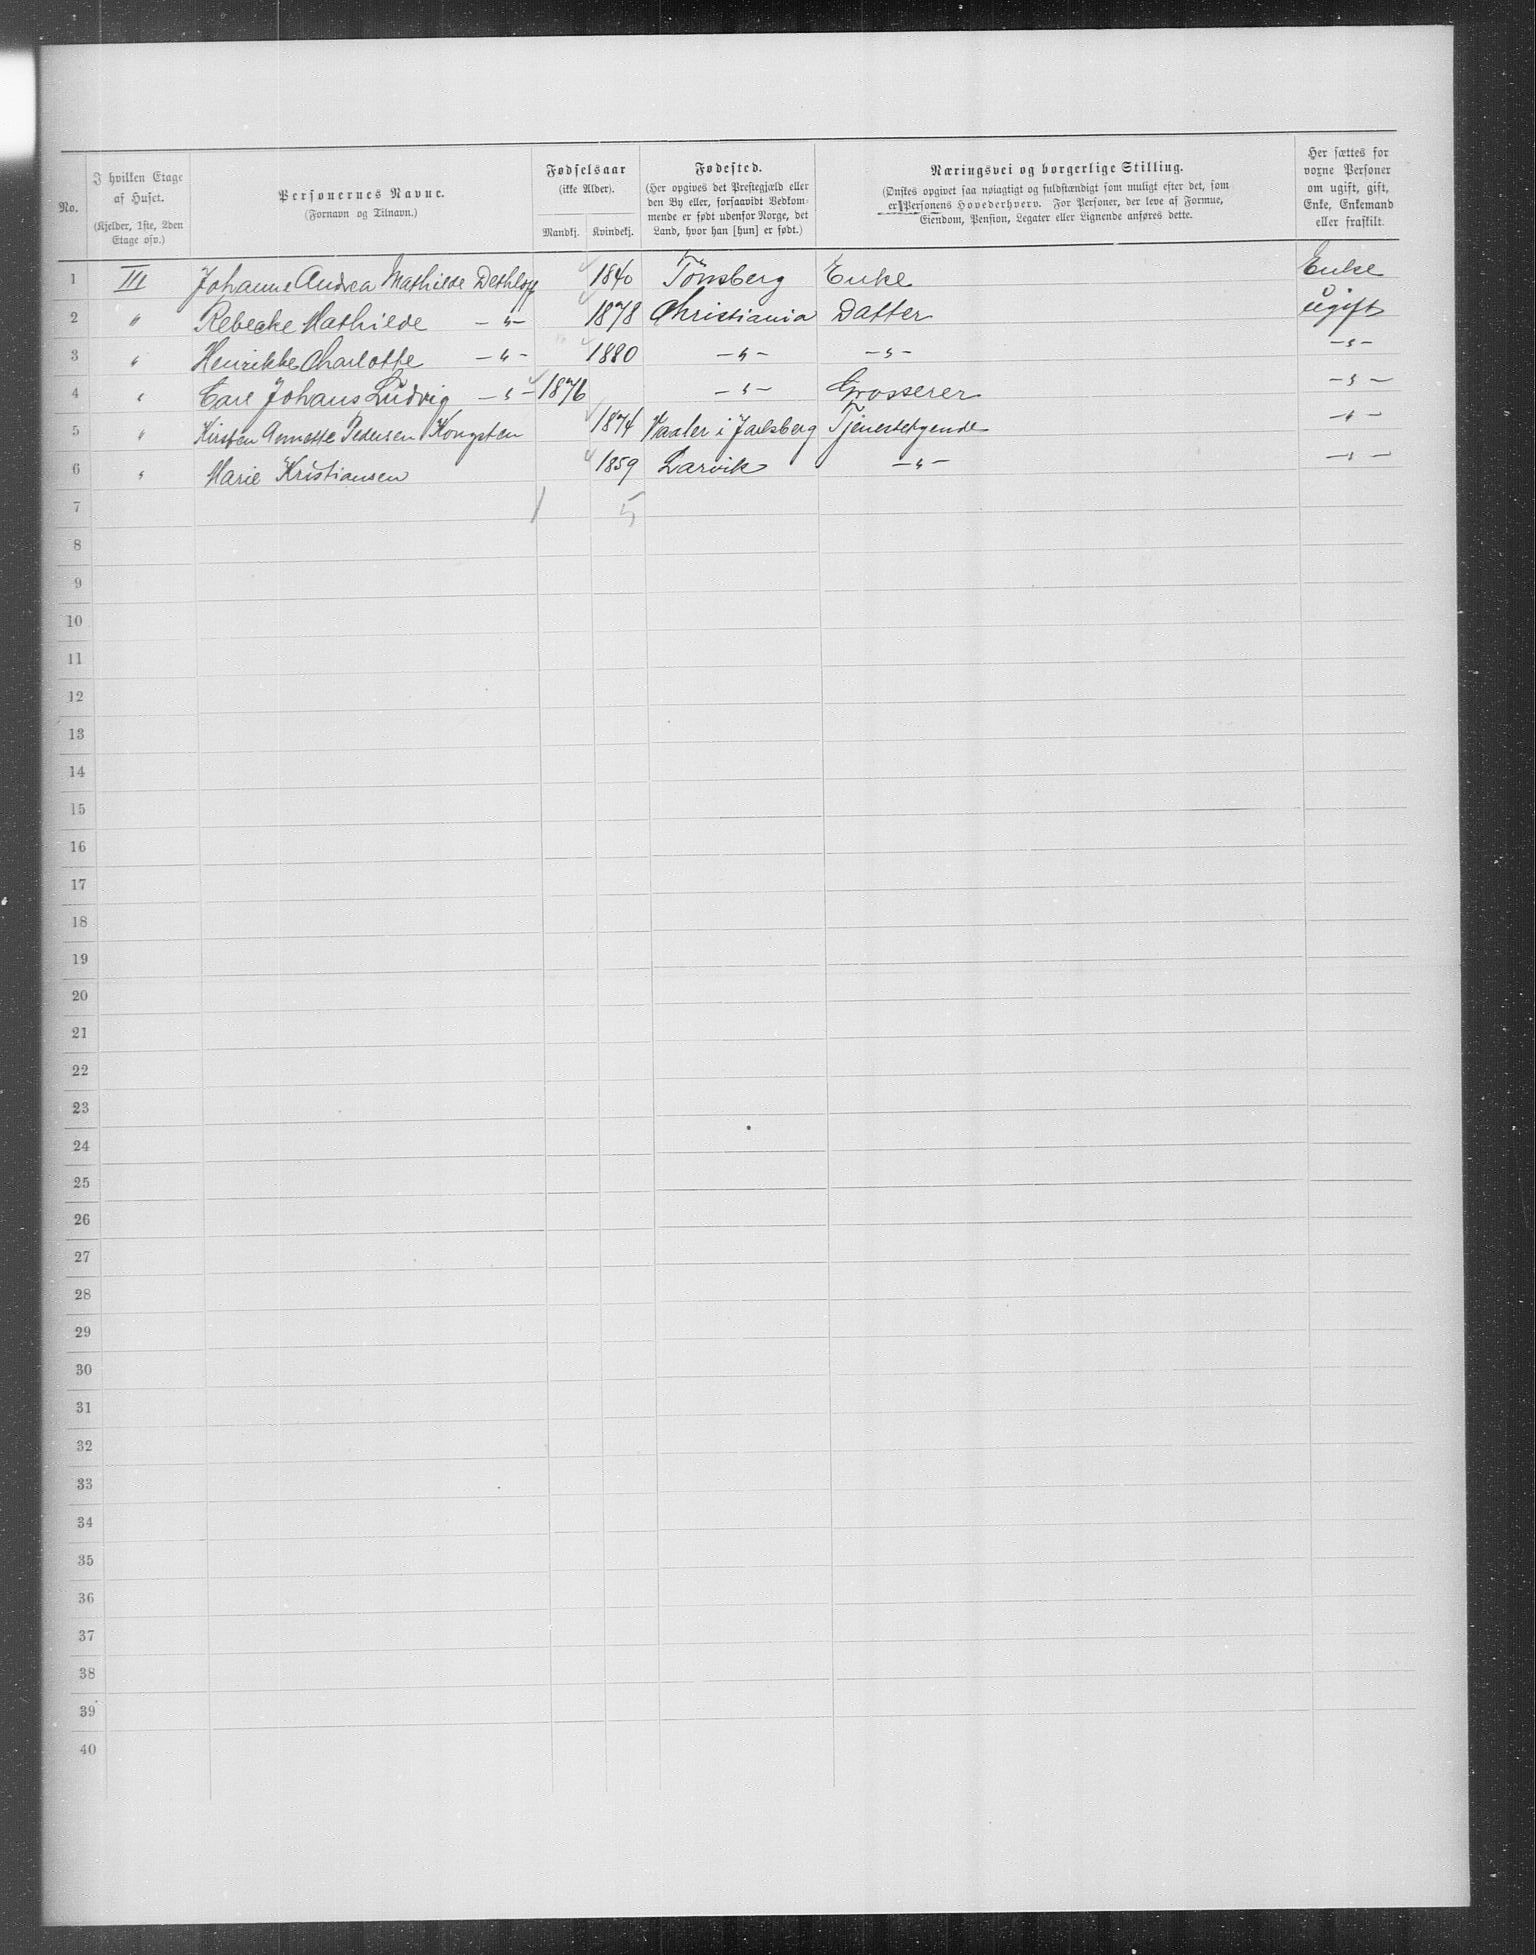 No.
I hvilken Etage af Huset.
(Kjelder, 1ste, 2den Etage osv.)
Personernes Navne.
(Fornavn og Tilnavn.)
Fødselsaar
(ikke Alder).
Mandkj. Kvindekj.
Fødested.
(Her opgives det Prestegjæld eller
den By eller, forsaavidt Vedkom-
mende er født udenfor Norge, det
Land, hvor han [hun] er født.)
Næringsvei og borgerlige Stilling.
(Ønskes opgivet saa nøiagtigt og fuldstændigt som muligt efter det, som
er Personens Hovederhverv. For Personer, der leve af Formue,
Eiendom, Pension, Legater eller Lignende anføres dette.
Her sættes for
voxne Personer
om ugift, gift,
Enke, Enkemand
eller fraskilt.
1 III Johanne Andrea Mathilde Dethloff 1840 Tönsberg Enke Enke
2 " Rebecke Mathilde —"— 1878 Christiania Datter ugift
3 " Henrikke Charlotte —"— 1880 —"— —"— —"—
4 " Carl Johans Ludvig —"— 1876 —"— Grosserer —"—
5 " Kirsten Annette Pedersen Kongsten 1874 Vaaler i Jarlsberg Tjenestetyende —"—
6 " Marie Kristiansen 1859 Larvik —"— —"—
7 1 5
8
9
10
11
12
13
14
15
16
17
18
19
20
21
22
23
24
25
26
27
28
29
30
31
32
33
34
35
36
37
38
39
40